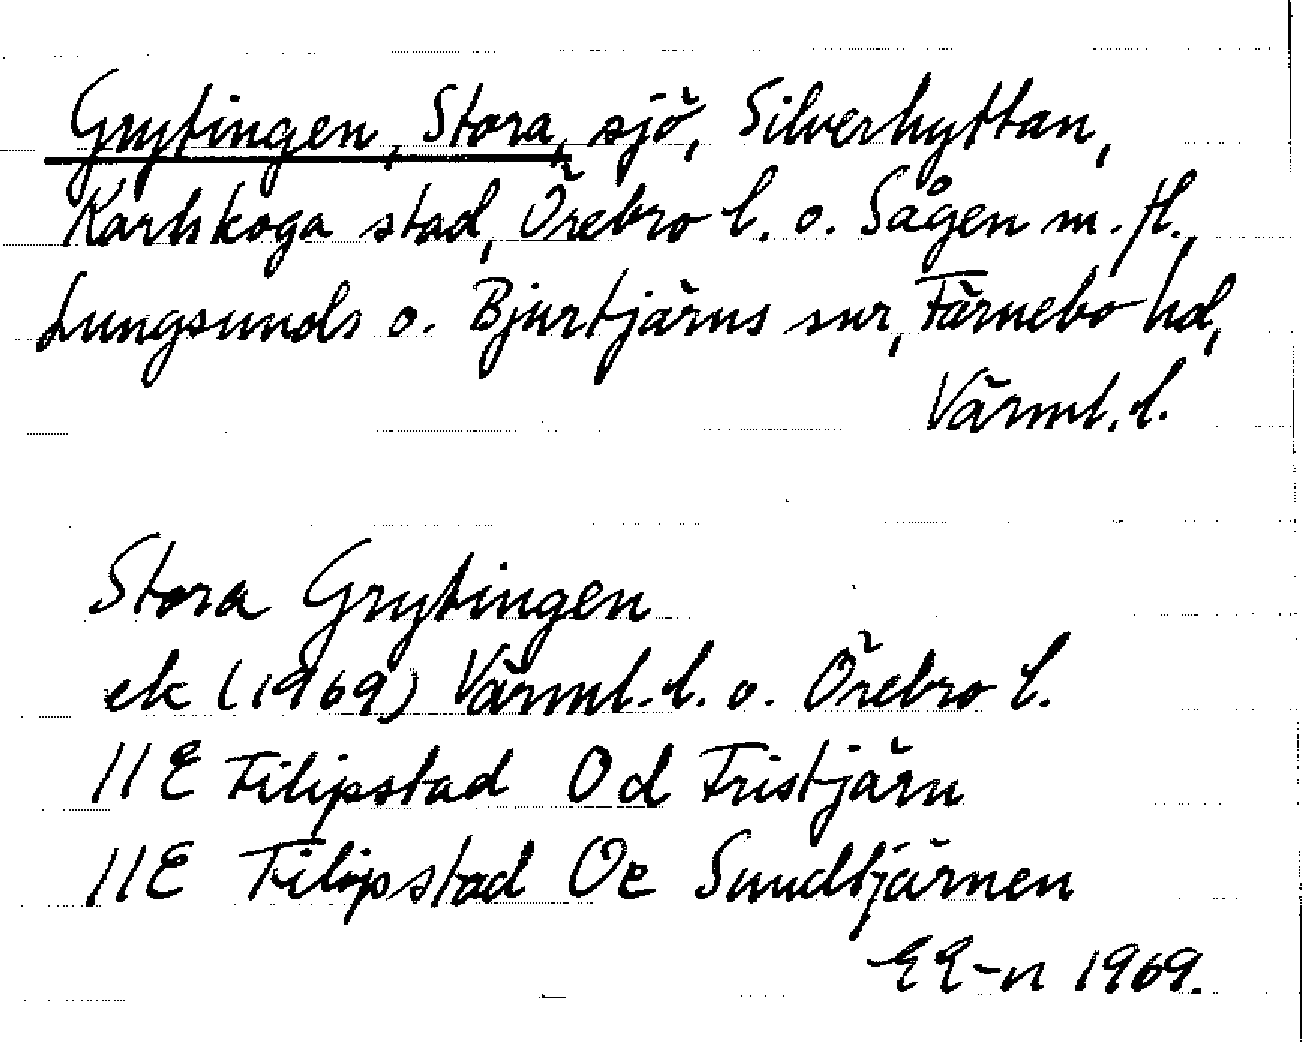 Grytingen, Stora, sjö, Silverhyttan,
Karlskoga stad, Örebro l. o. Sågen m. fl.,
Lungsunds o. Bjurtjärns snr, Färnebo hd,
Värml. l.
Stora Grytingen
ek (1969) Värml. l. o. Örebro l.
11E Filipstad Od Fristjärn
11E Filipstad Oe Sundtjärnen
EE-n 1969.